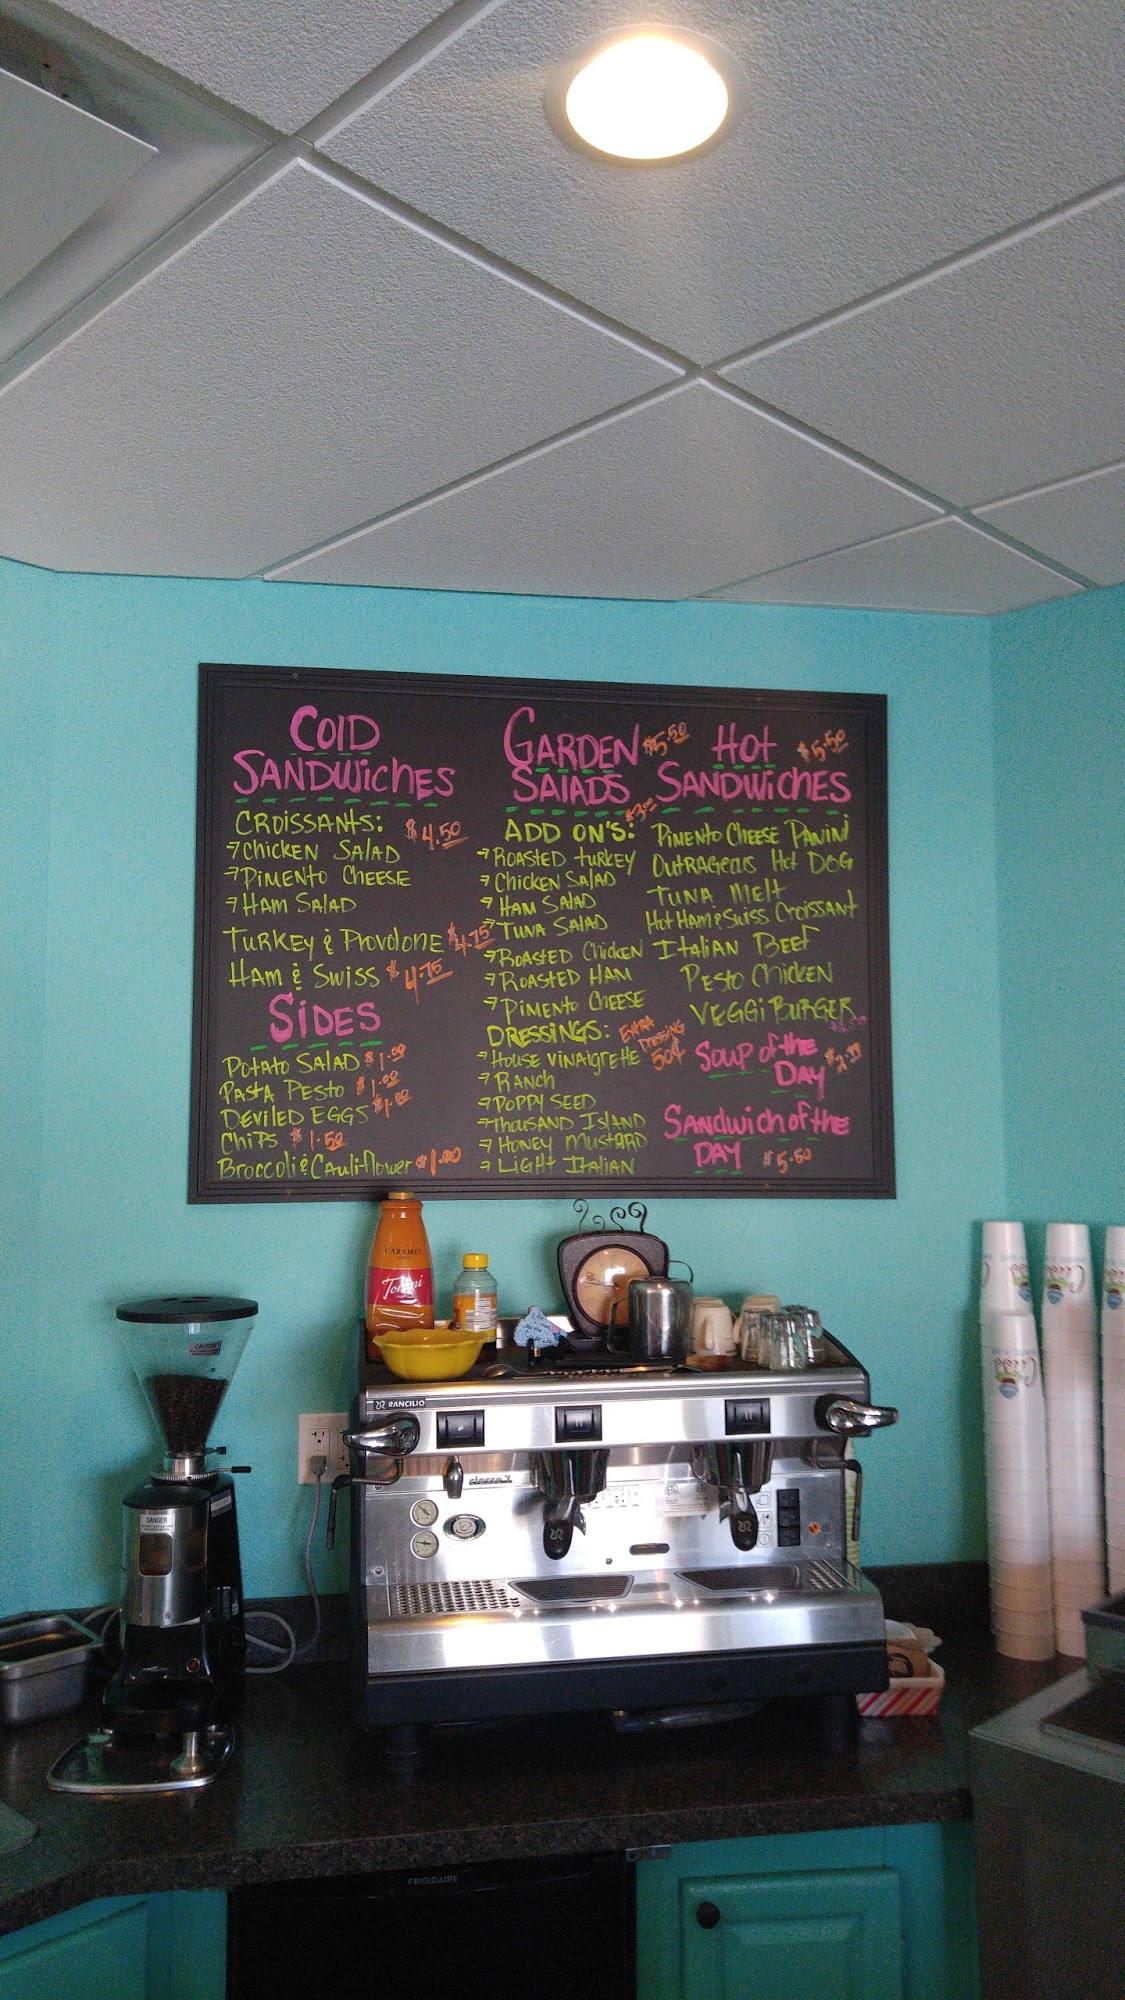 COLD
SANDWICHES
CROISSANTS: $4.50
CHICKEN SALAD
PIMENTO CHEESE
HAM SALAD
TURKEY & PROVOLONE $4.75
HAM & SWISS $4.75
SIDES
POTATO SALAD $1.00
PASTA PESTO $1.00
DEVILED EGGS $1.00
CHIPS $1.50
BROCCOLI & CAULIFLOWER $1.00
GARDEN $5.50
SALADS
$3.00
ADD ON'S:
ROASTED TURKEY
CHICKEN SALAD
HAM SALAD
TUNA SALAD
ROASTED CHICKEN
ROASTED HAM
PIMENTO CHEESE
DRESSINGS: EXTRA DRESSING 50¢
HOUSE VINAIGRETTE
RANCH
POPPY SEED
THOUSAND ISLAND
HONEY MUSTARD
LIGHT ITALIAN
HOT $5.50
SANDWICHES
PIMENTO CHEESE PANINI
OUTRAGEOUS HOT DOG
TUNA MELT
HOT HAM & SWISS CROISSANT
ITALIAN BEEF
PESTO CHICKEN
VEGGI BURGER
SOUP OF THE
DAY
SANDWICH OF THE
DAY $5.50
CARAMEL
Torani
RANCILIO
classe 7
CAUTION
DANGER
FRIGIDAIRE